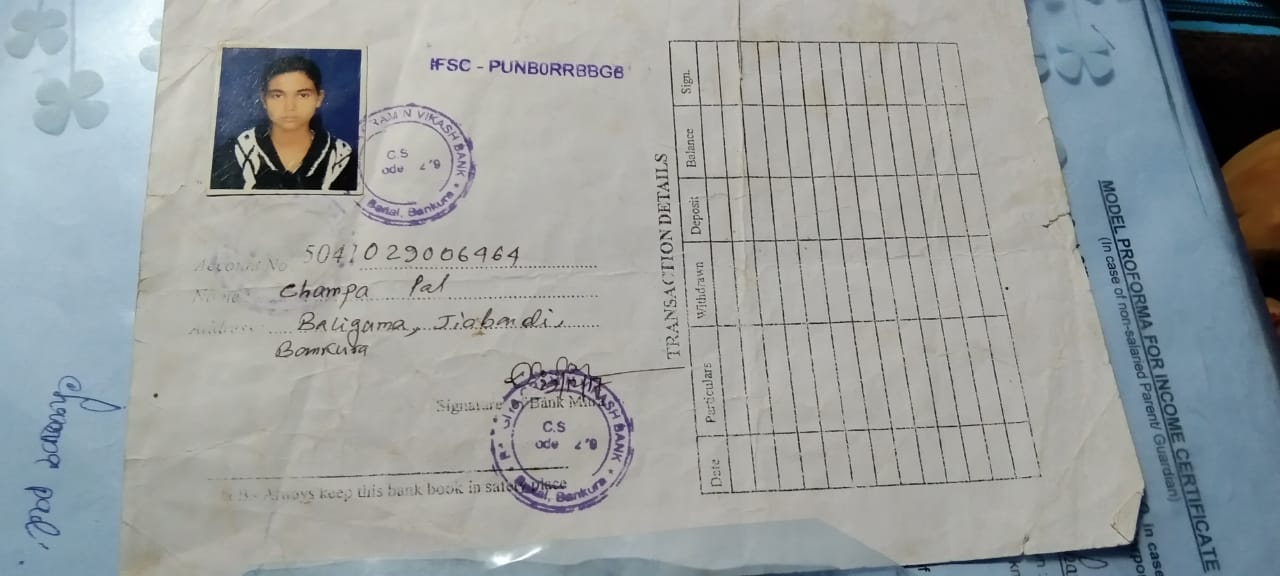 IFSC - PUNB0RRBBGB
RAMIN VIKASH BANK
C.S
Barjal, Bankura
Account No 5041029006464
Name Champa Pal
Address Baligama, Jiabandi,
Bankura
Signature Bank
VIKASH BANK
C.S
Bankura
N.B - Always keep this bank book in safety place
TRANSACTION DETAILS
Date Particulars Withdrawn Deposit Balance Sign.
MODEL PROFORMA FOR INCOME CERTIFICATE
(In case of non-salaried Parent/ Guardian)
in case
Champa pal.